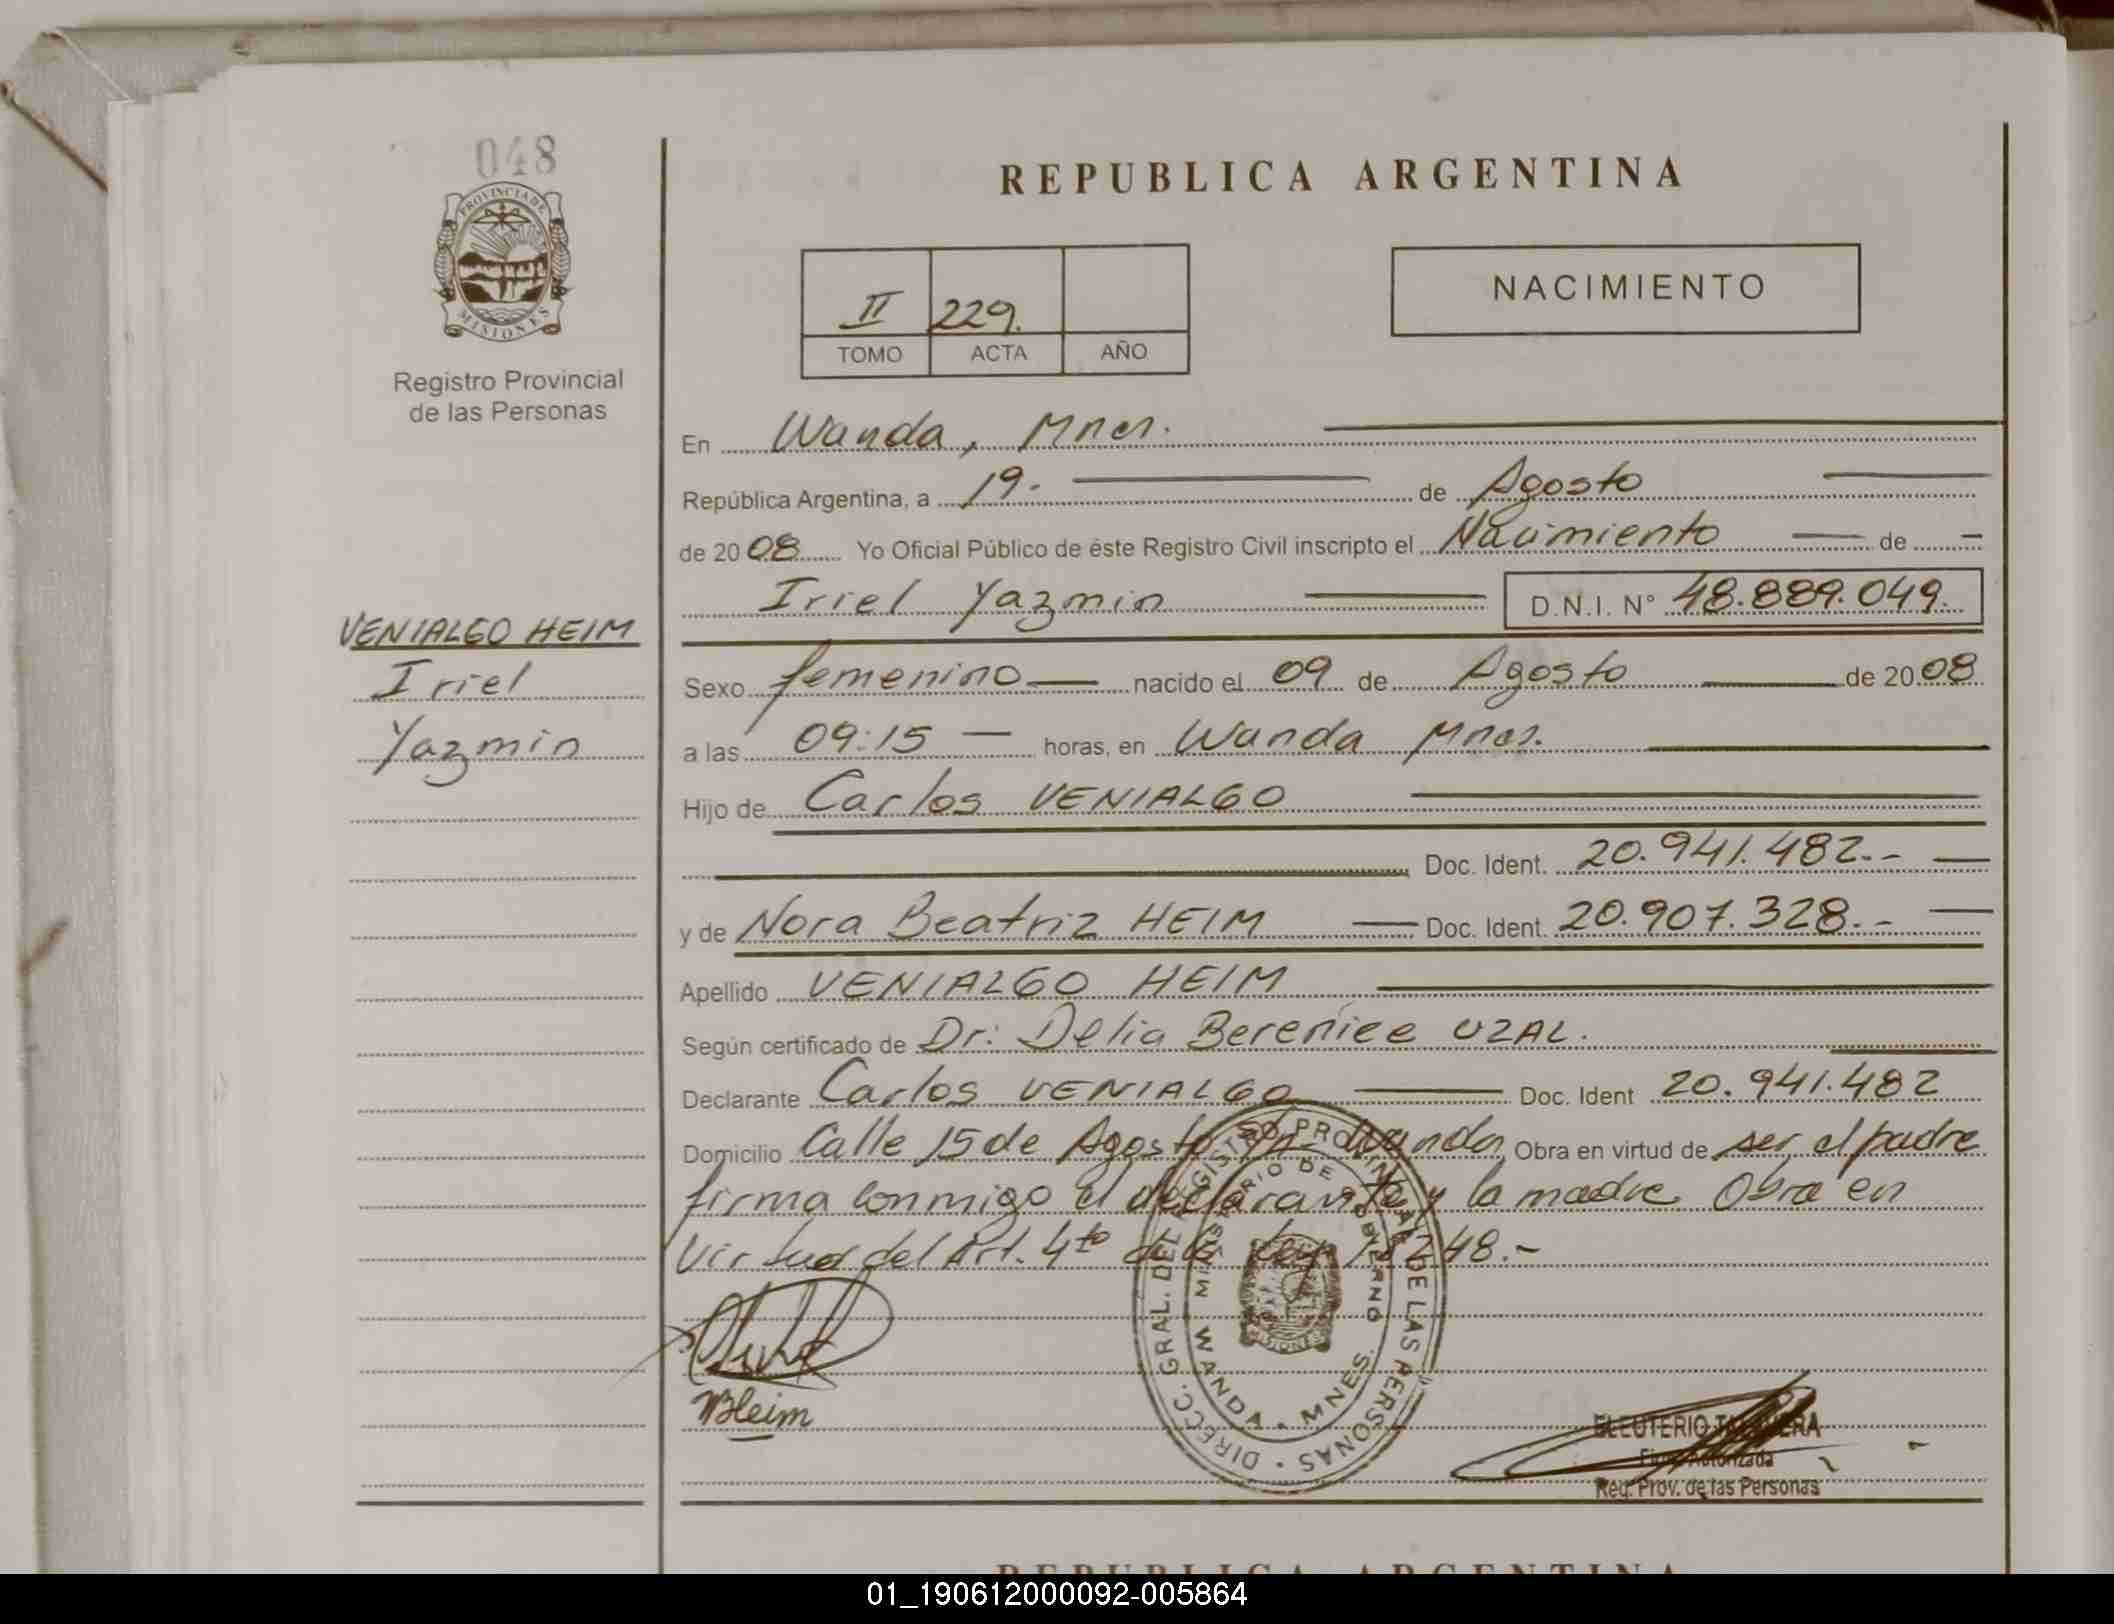 048
PROVINCIA DE
MISIONES
Registro Provincial
de las Personas
VENIALGO HEIM
Iriel
Yazmin
REPUBLICA ARGENTINA
II 229.
TOMO ACTA AÑO
NACIMIENTO
En Wanda, Mnes.
República Argentina, a 19. de Agosto
de 2008 Yo Oficial Público de éste Registro Civil inscripto el Nacimiento de
Iriel Yazmin D.N.I. N° 48.889.049.
Sexo femenino nacido el 09 de Agosto de 2008
a las 09:15 horas, en Wanda Mnes.
Hijo de Carlos VENIALGO
Doc. Ident. 20.941.482.-
y de Nora Beatriz HEIM Doc. Ident. 20.907.328.-
Apellido VENIALGO HEIM
Según certificado de Dr: Delia Berenice UZAL.
Declarante Carlos VENIALGO Doc. Ident 20.941.482
Domicilio Calle 15 de Agosto Wanda Obra en virtud de ser el padre
firma conmigo el declarante y la madre Obra en
Virtud del Art. 4to de la Ley 18248.-
DIRECC. GRAL. DEL REGISTRO PROVINCIAL DE LAS PERSONAS
MINISTERIO DE GOBIERNO
WANDA - MNES.
MISIONES
BHeim
ELEUTERIO TALAVERA
Firma Autorizada
Reg. Prov. de las Personas
REPUBLICA ARGENTINA
01_190612000092-005864